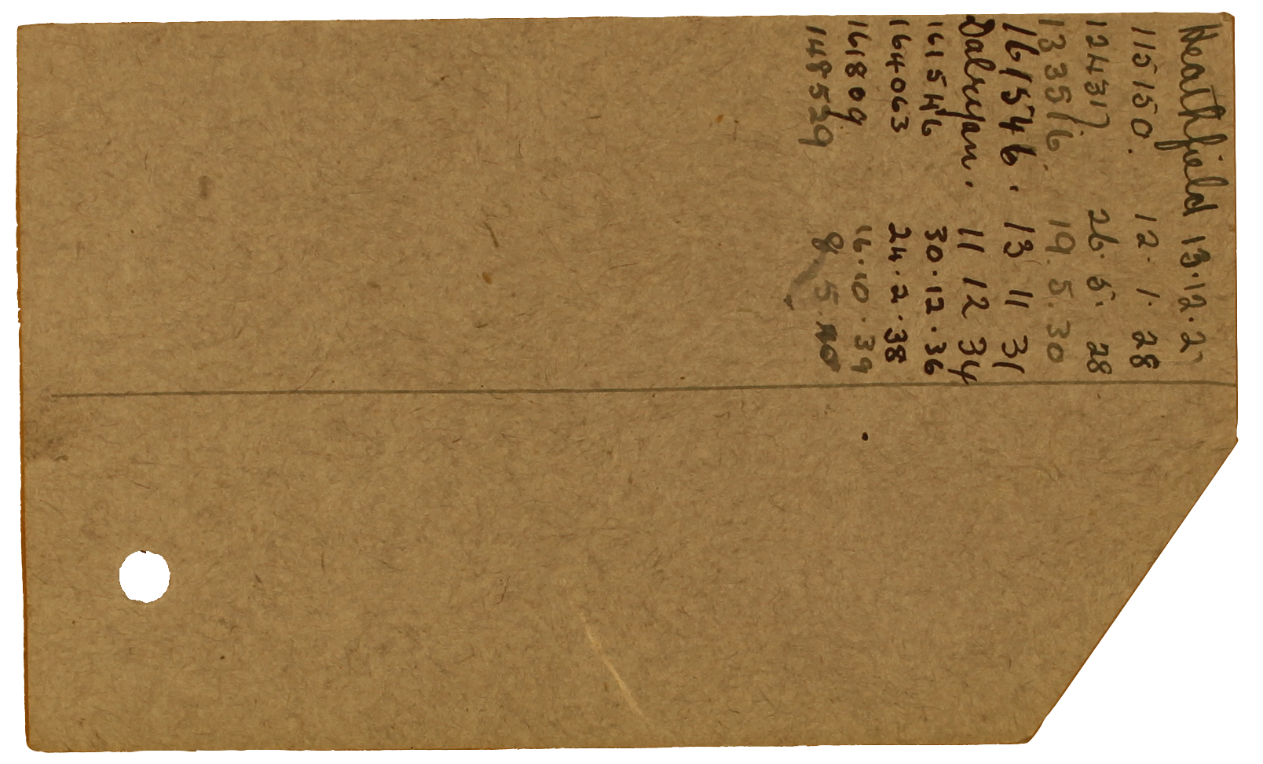 Heathfield 13.12.2
115150. 12. 1. 28
124317 26.5. 28
133516. 19. 5. 30
161546. 13 11 31
Dalryan. 11 12 34
161546 30.12.36
164063 24.2.38
161809 16.10.39
148529 8.5.40